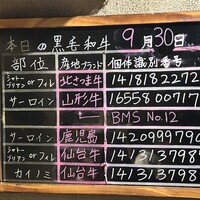 本日の黒毛和牛 9月30日
部位 産地ブランド 個体識別番号
シャトーブリアン or フィレ 北さつま牛 1418182272
サーロイン 山形牛 1655800717
BMS No.12
サーロイン 鹿児島 142099979
シャトーブリアン or フィレ 仙台牛 141313798
カイノミ 仙台牛 141313798